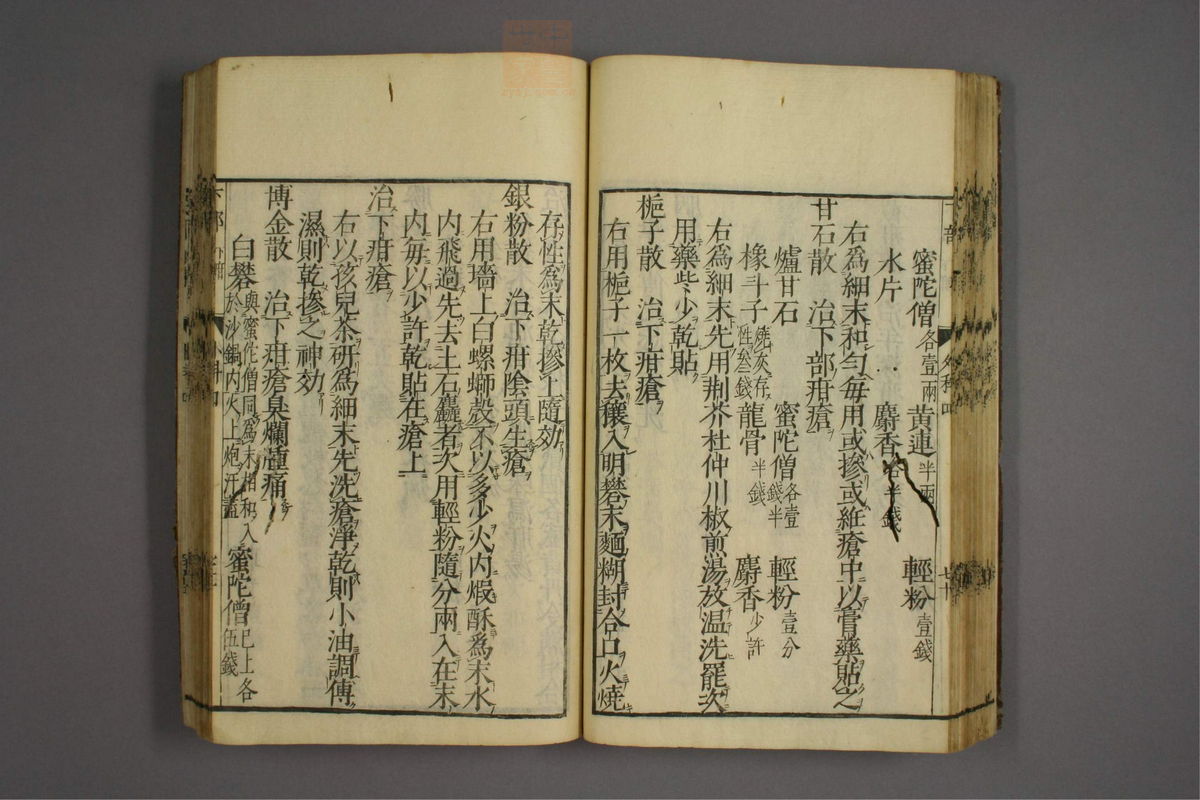 蜜陀僧各壹兩 黄連半兩 輕粉壹錢
水片 麝香各半錢
右為細末和勻每用或摻或絍瘡中以膏藥貼之
甘石散 治下部疳瘡
爐甘石 蜜陀僧各壹錢半 輕粉壹分
橡斗子燒灰存性叁錢 龍骨半錢 麝香少許
右為細末先用荆芥杜仲川椒煎湯放温洗罷次
用藥些少乾貼
梔子散 治下疳瘡
右用梔子一枚去穰入明礬末麵糊封合口火燒
存性為末乾摻上隨効
銀粉散 治下疳陰頭生瘡
右用墻上白螺螄殼不以多少火内煅酥為末水
内飛過先去土石麤者次用輕粉隨分兩入在末
内每以少許乾貼在瘡上
治下疳瘡
右以孩兒茶研為細末先洗瘡淨乾則小油調傅
濕則乾摻之神効
博金散 治下疳瘡臭爛蘓痛
白礬與蜜佗僧同為末相和入於沙鍋内火上炮汗盡 蜜陀僧已上各伍錢